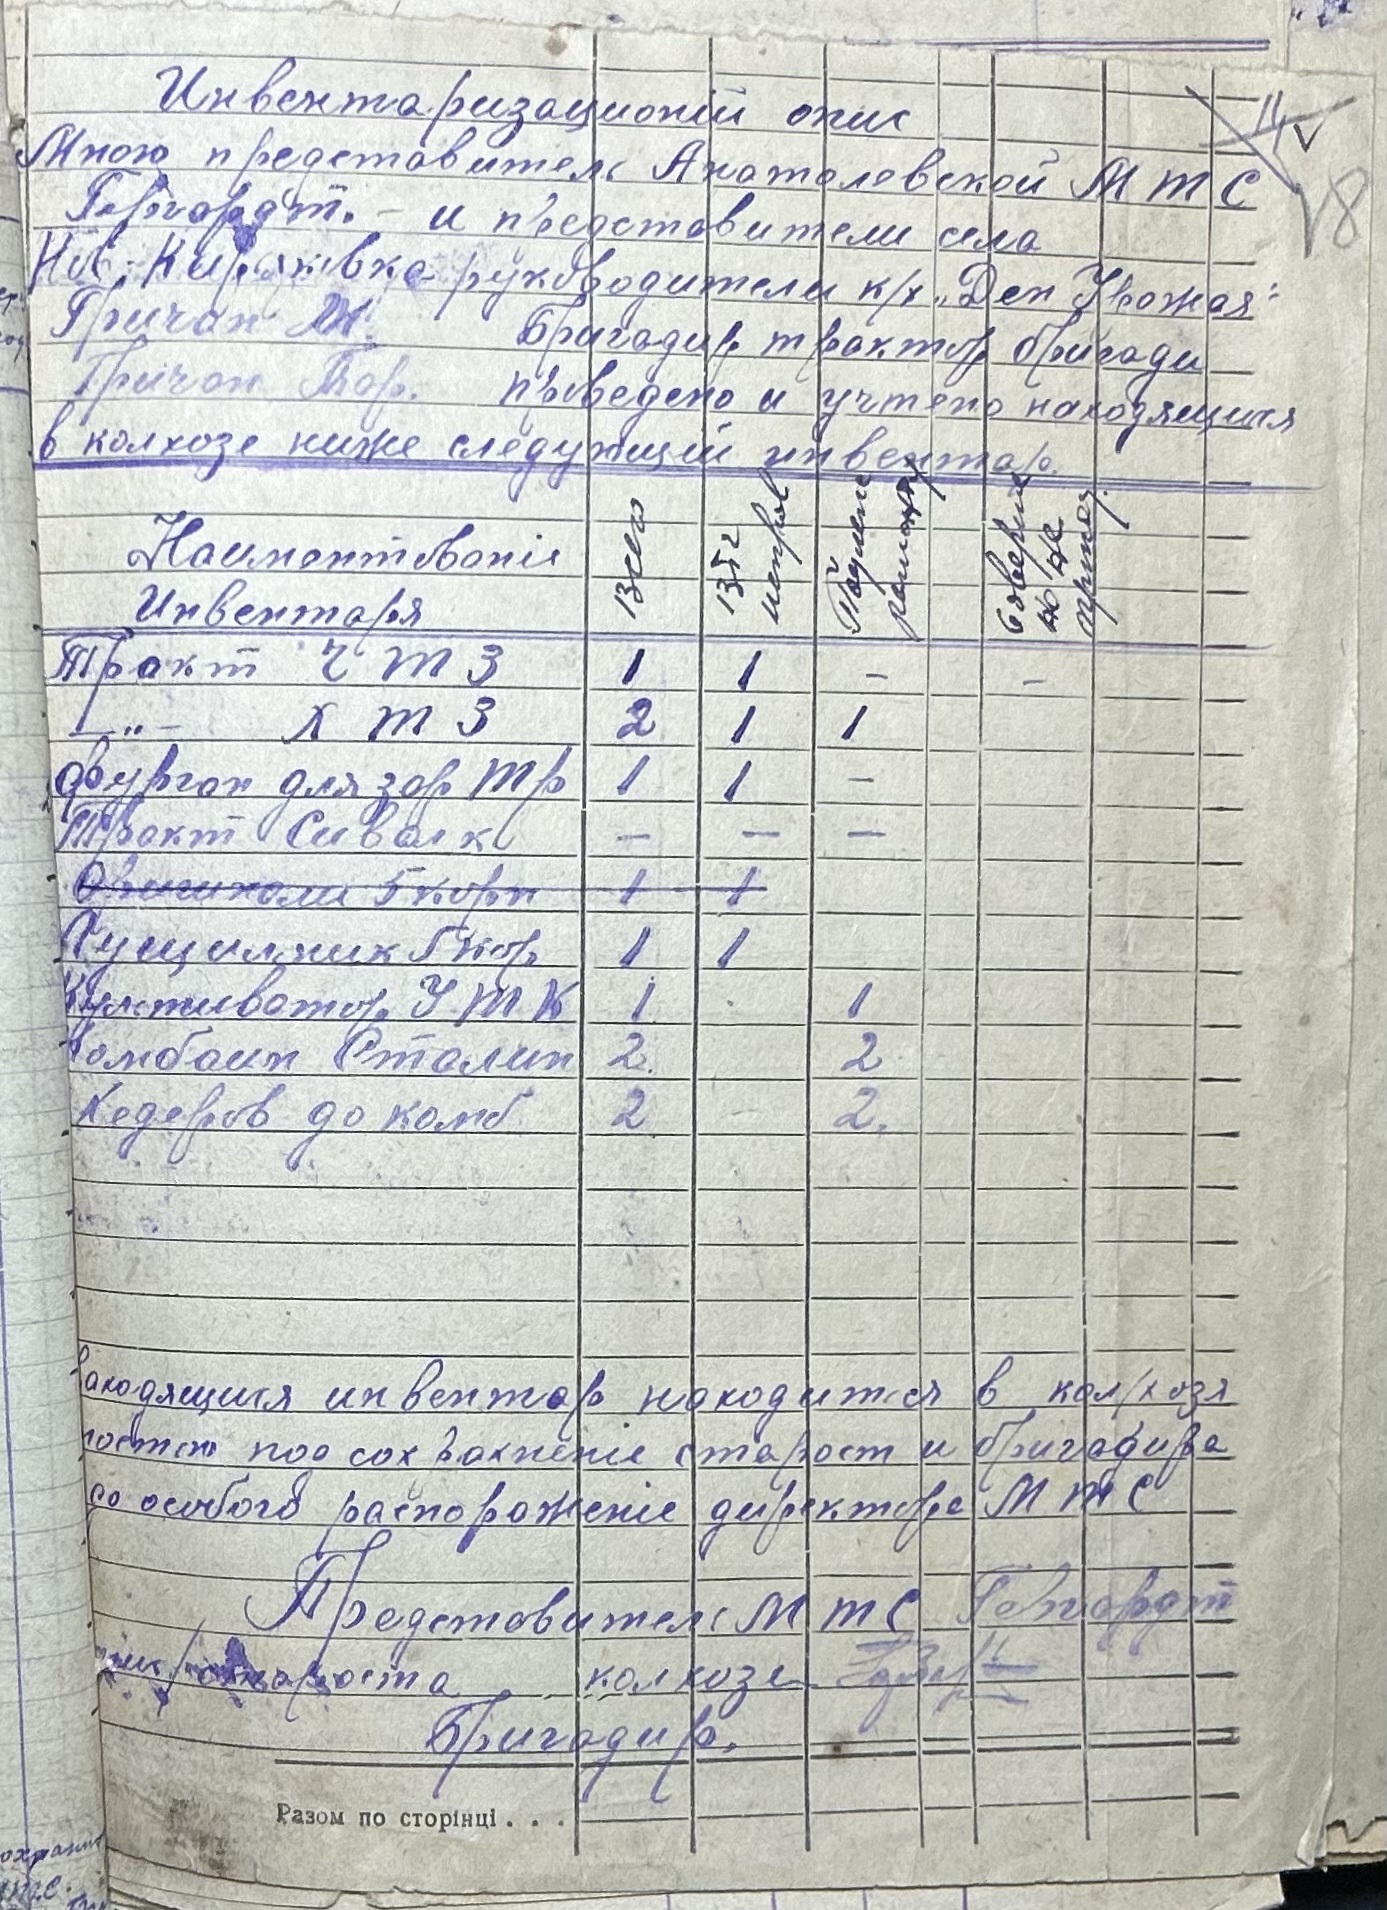 Инвентаризационій опис
Мною представитель Анатолевской МТС
Гергардт. - и представители села
Нов. Киряковка руководители к/х "Ден Урожая"
Гричан М. Бригадир трактор бригади
Гричан проведено и учтено находящихся
в колхозе ниже следующий инвентар.
Наиментованіе
Инвентаря
Всего
исправ
Совершен
не
пригод.
Тракт ЧТЗ 1 1 - -
-„- ХТЗ 2 1 1
фургон для зар тр 1 1 -
Тракт Сивалк - - -
5 корп 1 1
Лущилник 5 кор. 1 1
Културватор УТК 1 1
Комбаин Сталин 2 2
Хедеров до комб 2 2.
находящихся инвентар находится в колхозя
под сохранение старост и бригадира
до особого распоражение директора МТС
Представитель МТС Гергардт
староста колхоза
Бригадир.
Разом по сторінці . . .